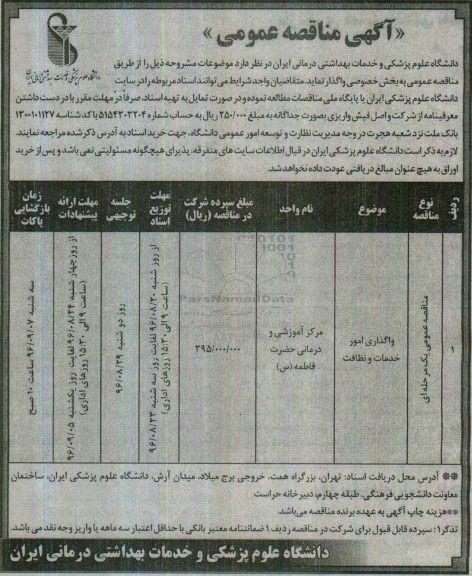 «آگهی مناقصه عمومی»
دانشگاه علوم پزشکی و خدمات بهداشتی درمانی ایران
دانشگاه علوم پزشکی و خدمات بهداشتی درمانی ایران در نظر دارد موضوعات مشروحه ذیل را از طریق
مناقصه عمومی به بخش خصوصی واگذار نماید. متقاضیان واجد شرایط می‌توانند اسناد مربوطه را در سایت
دانشگاه علوم پزشکی ایران یا پایگاه ملی مناقصات مطالعه نموده و در صورت تمایل به تهیه اسناد، صرفاً در مهلت مقرر با در دست داشتن
معرفینامه از شرکت و اصل فیش واریزی بصورت جداگانه به مبلغ ۲۵۰/۰۰۰ ریال به حساب شماره ۵۱۵۴۳۰۳۲۰۴ با کد شناسه ۱۳۰۰۱۰۱۱۲۷
بانک ملت نزد شعبه هجرت در وجه مدیریت نظارت و توسعه امور عمومی دانشگاه، جهت خرید اسناد به آدرس ذکر شده مراجعه نمایند.
لازم به ذکر است دانشگاه علوم پزشکی ایران در قبال اطلاعات سایت های متفرقه، پذیرای هیچگونه مسئولیتی نمی باشد و پس از خرید
اوراق به هیچ عنوان مبالغ دریافتی عودت داده نخواهد شد.
ردیف
نوع مناقصه
موضوع
نام واحد
مبلغ سپرده شرکت در مناقصه (ریال)
مهلت توزیع اسناد
جلسه توجیهی
مهلت ارائه پیشنهادات
زمان بازگشایی پاکات
۱
مناقصه عمومی یک مرحله ای
واگذاری امور خدمات و نظافت
مرکز آموزشی و درمانی حضرت فاطمه (س)
۳۹۵/۰۰۰/۰۰۰
از روز شنبه ۹۶/۰۸/۲۰ لغایت روز سه شنبه ۹۶/۰۸/۲۳ (ساعت ۹ الی ۱۵:۳۰ روزهای اداری)
روز دو شنبه ۹۶/۰۸/۲۹
از روز چهار شنبه ۹۶/۰۸/۲۴ لغایت روز یکشنبه ۹۶/۰۹/۰۵ (ساعت ۹ الی ۱۵:۳۰ روزهای اداری)
سه شنبه ۹۶/۰۹/۰۷ ساعت ۱۰ صبح
ParsNamadData
** آدرس محل دریافت اسناد: تهران، بزرگراه همت، خروجی برج میلاد، میدان آرش، دانشگاه علوم پزشکی ایران، ساختمان
معاونت دانشجویی فرهنگی، طبقه چهارم، دبیرخانه حراست
**هزینه چاپ آگهی به عهده برنده مناقصه می‌باشد.
تذکر۱: سپرده قابل قبول برای شرکت در مناقصه ردیف ۱ ضمانتنامه معتبر بانکی با حداقل اعتبار سه ماهه یا واریز وجه نقد می باشد.
دانشگاه علوم پزشکی و خدمات بهداشتی درمانی ایران